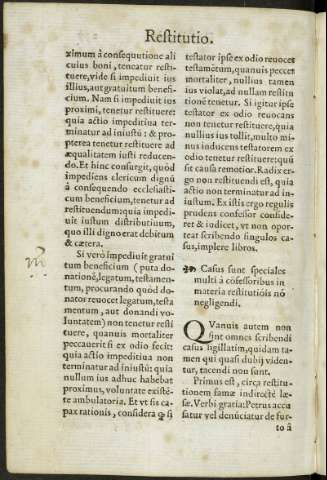 Restitutio.
ximum à consequutione ali
cuius boni, teneatur resti-
tuere, vide si impediuit ius
illius, aut gratuitum benefi-
cium. Nam si impediuit ius
proximi, tenetur restituere:
quia actio impeditiua ter-
minatur ad iniustũ: & pro-
pterea tenetur restituere ad
æqualitatem iusti reducen-
do. Et hinc consurgit, quòd
impediens clericum dignũ
à consequendo ecclesiasti-
cum beneficium, tenetur ad
restituendum: quia impedi-
uit iustum distributiuum,
quo illi dignorat debitum
& cætera.
Si verò impediuit gratui
tum beneficium (puta do-
nationẽ, legatum, testamen-
tum, procurando quòd do-
nator reuocet legatum, testa
mentum, aut donandi vo-
luntatem) non tenetur resti
tuere, quanuis mortaliter
peccauerit si ex odio fecit:
quia actio impeditiua non
terminatur ad iniustũ: quia
nullum ius adhuc habebat
proximus, voluntate existẽ-
te ambulatoria. Et vt sis ca-
pax rationis, considera ꝙ si
testator ipse ex odio reuocet
testamẽtum, quanuis peccet
mortaliter, nullius tamen
ius violat, ad nullam restitu
tionẽ tenetur. Si igitur ipse
testator ex odio reuocans
non tenetur restituere, quia
nullius ius tollit, multo mi
nus inducens testatorem ex
odio tenetur restituere: quũ
sit causa remotior. Radix er
go non restituendi est, quia
actio non terminatur ad in-
iustum. Ex istis ergo regulis
prudens confessor conside-
ret & iudicet, vt non opor-
teat scribendo singulos ca-
sus, implere libros.
Casus sunt speciales
multi à cõfessoribus in
materia restitutiõis nõ
negligendi.
QVanuis autem non
sint omnes scribendi
casus sigillatim, quidam ta-
men qui quasi dubij viden-
tur, tacendi non sunt.
Primus est, circa restitu-
tionem famæ indirectè læ-
sæ. Verbi gratia: Petrus accu
satur vel denũciatur de fur-
to à